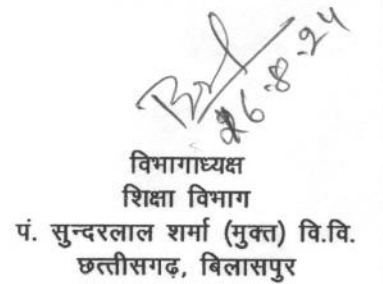 26-8-24
विभागाध्यक्ष
शिक्षा विभाग
पं. सुन्दरलाल शर्मा (मुक्त) वि.वि.
छत्तीसगढ़, बिलासपुर